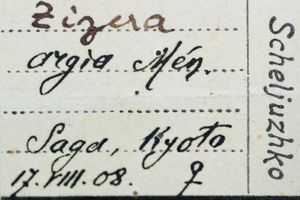 Zizera
argia Mén.
Saga, Kyoto
17.VIII.08. ♀
Scheljuzhko